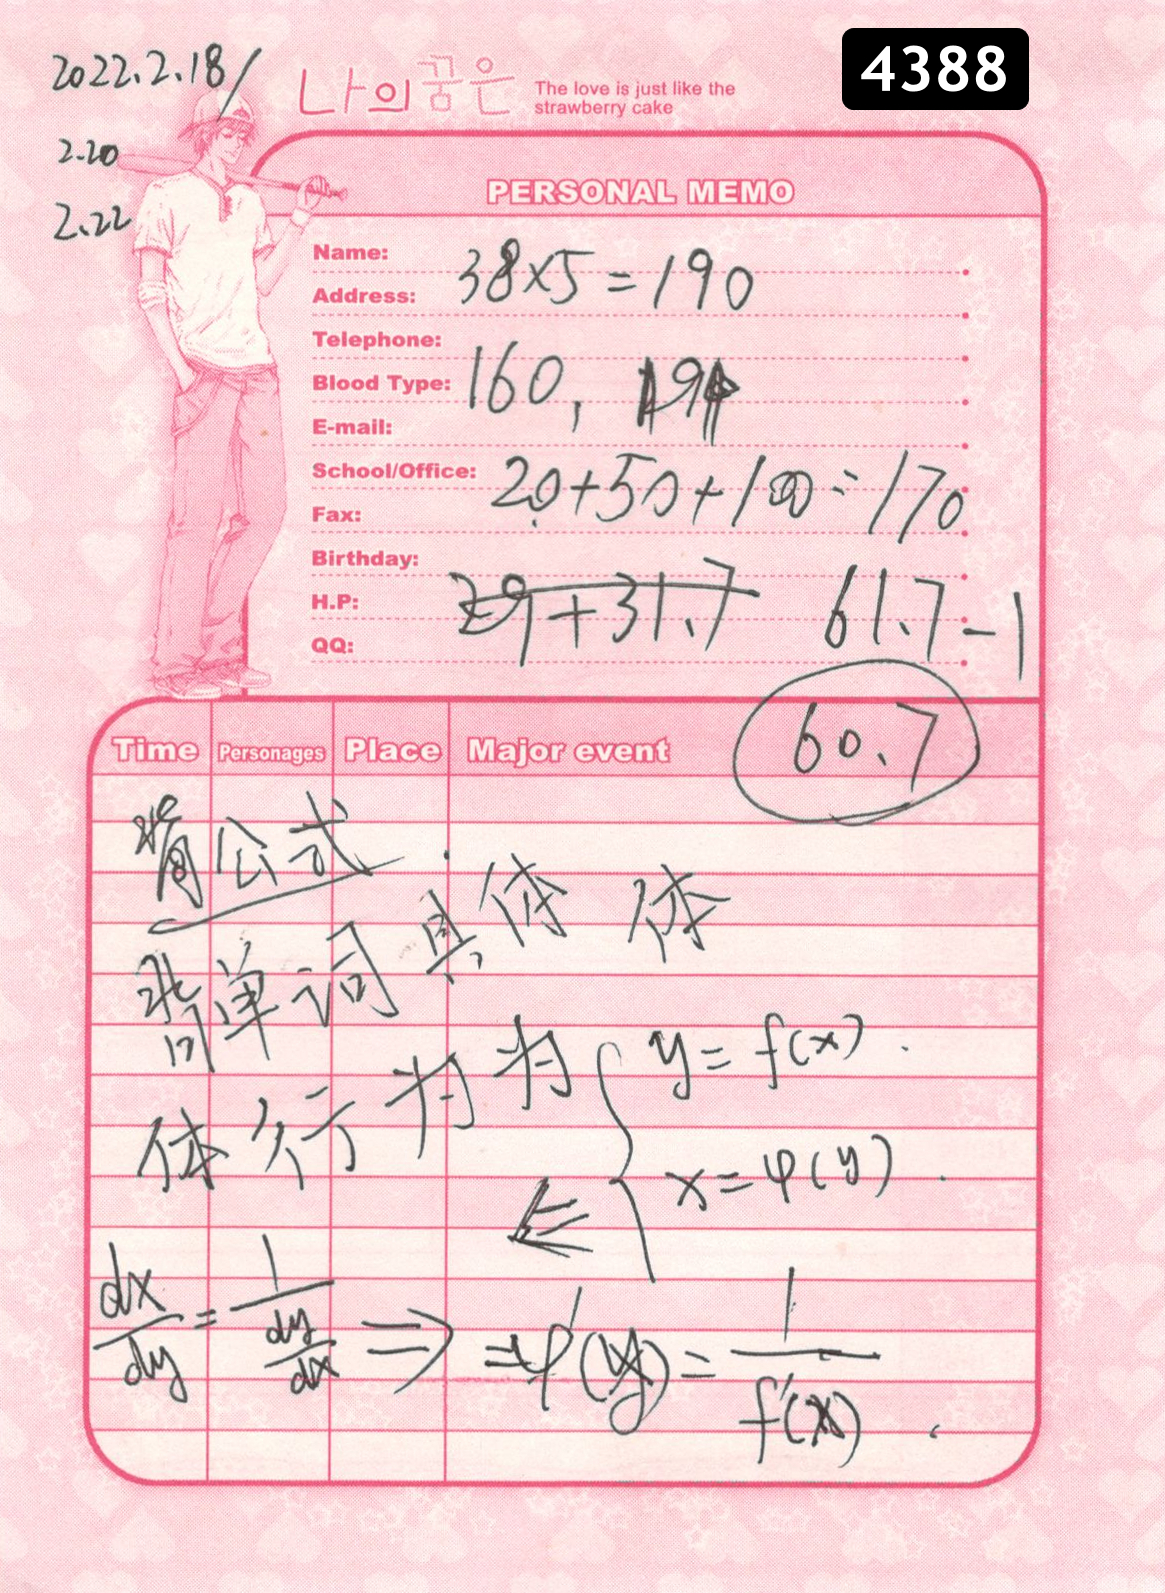 4388
2022.2.18/
2.20
2.22
나의꿈은
The love is just like the
strawberry cake
PERSONAL MEMO
Name:
38×5=190
Address:
Telephone:
160,
Blood Type:
E-mail:
School/Office:
20+50+100=170
Fax:
Birthday:
29+31.7 61.7-1
H.P:
QQ:
60.7
Time Personages Place Major event
背公式
背单词具体 体
体行为为
y=f(x).
x=φ(y).
dx/dy = 1/(dy/dx) ⇒ =φ'(y)= 1/f'(x)